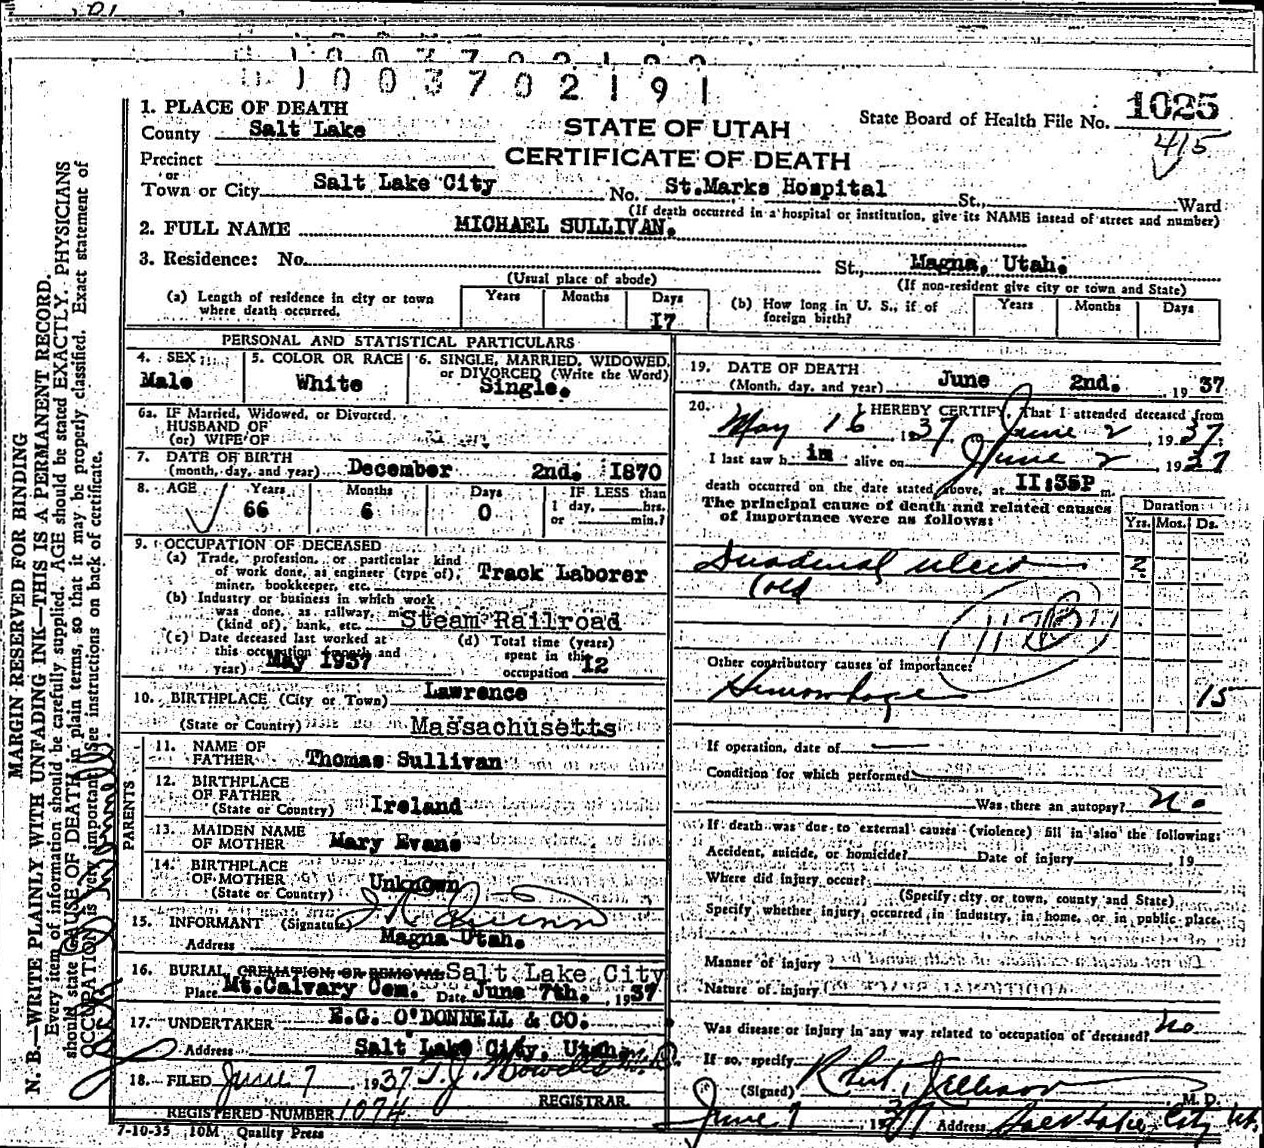 1003702191
1025
State Board of Health File No.
415
1. PLACE OF DEATH
County Salt Lake
STATE OF UTAH
CERTIFICATE OF DEATH
Precinct
or
Town or City Salt Lake City No. St.Marks Hospital St., Ward
(If death occurred in a hospital or institution, give its NAME instead of street and number)
2. FULL NAME MICHAEL SULLIVAN.
3. Residence: No. St., Magna, Utah.
(Usual place of abode) (If non-resident give city or town and State)
(a) Length of residence in city or town where death occurred. Years Months Days 17
(b) How long in U. S., if of foreign birth? Years Months Days
PERSONAL AND STATISTICAL PARTICULARS
4. SEX Male
5. COLOR OR RACE White
6. SINGLE, MARRIED, WIDOWED, or DIVORCED (Write the Word) Single.
6a. IF Married, Widowed, or Divorced
HUSBAND OF
(or) WIFE OF
7. DATE OF BIRTH
(month, day, and year) December 2nd. 1870
8. AGE Years 66 Months 6 Days 0
IF LESS than
1 day, hrs.
or min.?
9. OCCUPATION OF DECEASED
(a) Trade, profession, or particular kind
of work done, as engineer (type of),
miner, bookkeeper, etc. Track Laborer
(b) Industry or business in which work
was done, as railway,
(kind of), bank, etc. Steam Railroad
(c) Date deceased last worked at
this occupation (month and
year) May 1937
(d) Total time (years)
spent in this
occupation 12
10. BIRTHPLACE (City or Town) Lawrence
(State or Country) Massachusetts
PARENTS
11. NAME OF
FATHER Thomas Sullivan
12. BIRTHPLACE
OF FATHER
(State or Country) Ireland
13. MAIDEN NAME
OF MOTHER Mary Evans
14. BIRTHPLACE
OF MOTHER
(State or Country) Unknown
15. INFORMANT (Signature)
Address Magna Utah.
16. BURIAL, CREMATION, OR REMOVAL Salt Lake City
Place Mt.Calvary Cem. Date June 7th. 1937
17. UNDERTAKER E.G. O'DONNELL & CO.
Address Salt Lake City, Utah.
18. FILED June 7, 1937 T.J. Howells M.D.
REGISTRAR.
REGISTERED NUMBER 1074
7-10-35 10M Quality Press
19. DATE OF DEATH
(Month, day, and year) June 2nd. 1937
20. I HEREBY CERTIFY, That I attended deceased from
May 16 1937 June 2, 1937
I last saw him alive on June 2, 1937
death occurred on the date stated above, at 11:35P m.
The principal cause of death and related causes
of importance were as follows:
Duration
Yrs. Mos. Ds.
Duodenal ulcer 2
(old
117B
Other contributory causes of importance:
Hemorrhage 15
If operation, date of
Condition for which performed
Was there an autopsy? No
If death was due to external causes (violence) fill in also the following:
Accident, suicide, or homicide? Date of injury, 19
Where did injury occur?
(Specify city or town, county and State)
Specify whether injury occurred in industry, in home, or in public place.
Manner of injury
Nature of injury
Was disease or injury in any way related to occupation of deceased? No
If so, specify
(Signed) Robt. M. D.
June 7 1937 Address Salt Lake City Ut.
MARGIN RESERVED FOR BINDING
N. B.—WRITE PLAINLY WITH UNFADING INK—THIS IS A PERMANENT RECORD.
Every item of information should be carefully supplied. AGE should be stated EXACTLY. PHYSICIANS
should state CAUSE OF DEATH in plain terms, so that it may be properly classified. Exact statement of
OCCUPATION is very important. See instructions on back of certificate.